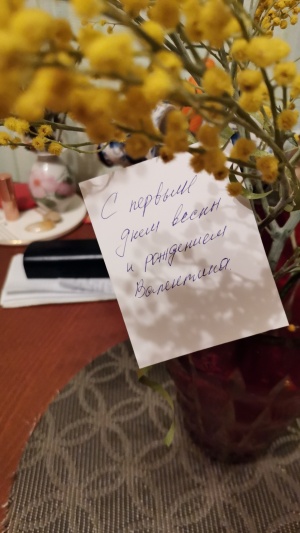 С первым
днем весны
и рождением
Валентина